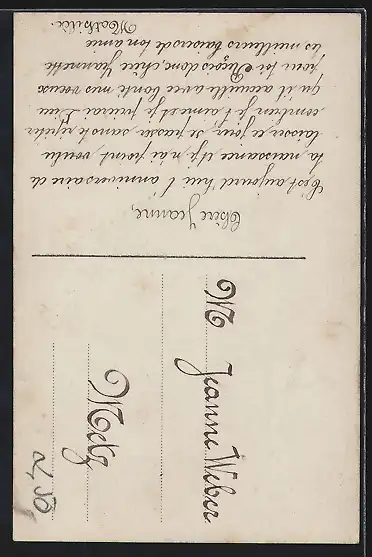 Chère Jeanne,
C'est aujourd'hui l'anniversaire de
ta naissance et je n'ai point voulu
laisser ce jour se passer sans te répéter
combien je t'aime et je prierai Dieu
qu'il accueille avec bonté mes voeux
pour toi. Reçois donc, chère Jeannette
les meilleurs baisers de ton amie
Mathilde.
M Jeanne Weber
Metz